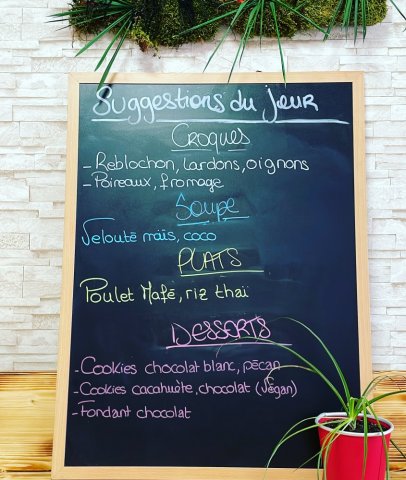 Suggestions du jour
Croques
- Reblochon, lardons, oignons
- Poireaux, fromage
Soupe
Velouté maïs, coco
PLATS
Poulet Mafé, riz thaï
DESSERTS
- Cookies chocolat blanc, pécan
- Cookies cacahuète, chocolat (Végan)
- Fondant chocolat